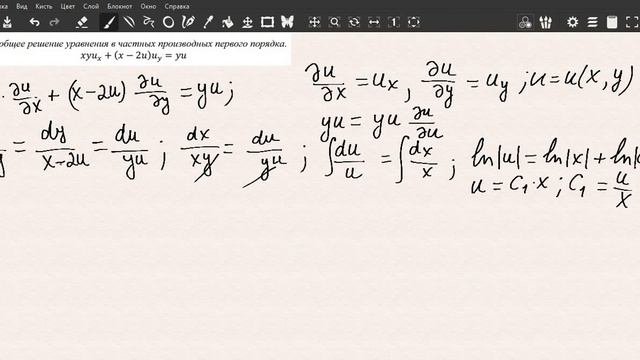 ка Вид Кисть Цвет Слой Блокнот Окно Справка
общее решение уравнения в частных производных первого порядка.
xyuₓ + (x − 2u)u_y = yu
· ∂u/∂x + (x−2u) ∂u/∂y = yu ;
∂u/∂x = uₓ , ∂u/∂y = u_y ; u = u(x, y)
yu = yu ∂u/∂u
y = dy/(x−2u) = du/yu ; dx/xy = du/yu ; ∫du/u = ∫dx/x ; ln|u| = ln|x| + ln|
u = C₁ · x ; C₁ = u/x